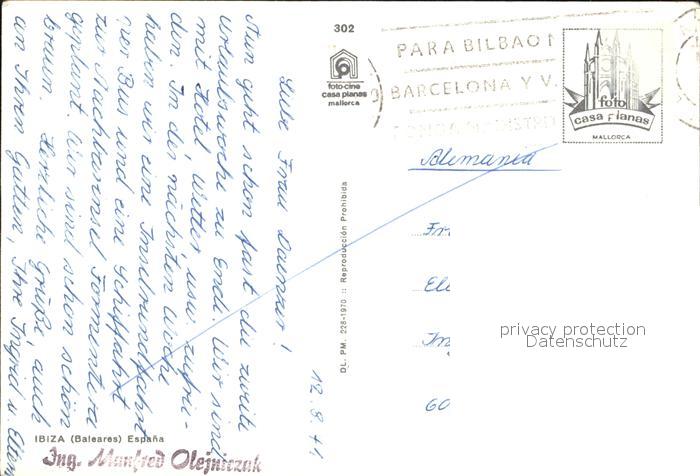 302
foto-cine
casa planas
mallorca
PARA BILBAO
BARCELONA Y V.
foto
casa planas
MALLORCA
Alemania
Fr
Ele
In
60
privacy protection
Datenschutz
DL. PM. 228-1970 :: Reproducción Prohibida
12.9.71
Liebe Frau Daenzer!
Nun geht schon fast die zweite
Urlaubswoche zu Ende. Wir sind
mit Hotel, Wetter, usw. zufrie-
den. In der nächsten Woche
haben wir eine Inselrundfahrt
per Bus und eine Schiffahrt
zur Nachbarinsel Formentera
geplant. Wir sind schon schön
braun. Herzliche Grüße, auch
an Ihren Gatten, Ihre Ingrid u.
IBIZA (Baleares) España
Ing. Manfred Olejniczak